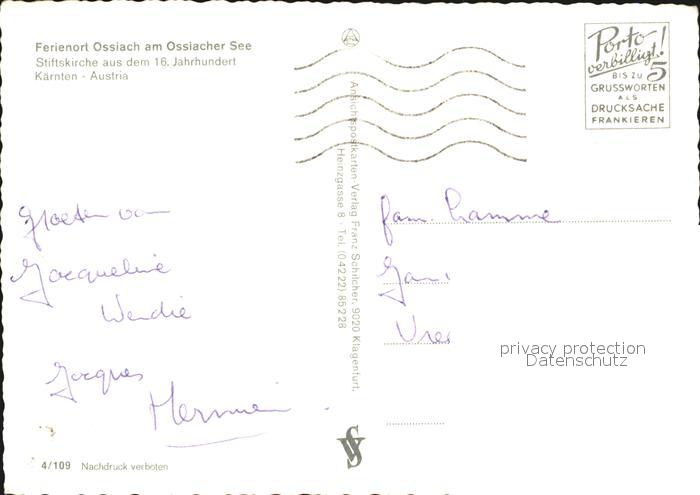 Ferienort Ossiach am Ossiacher See
Stiftskirche aus dem 16. Jahrhundert
Kärnten - Austria
Groeten van
Jacqueline
Wendie
Jacques
4/109 Nachdruck verboten
Ansichtspostkarten-Verlag Franz Schilcher, 9020 Klagenfurt,
Heinzgasse 8 - Tel. (04222) 85228
Porto
verbilligt!
BIS ZU 5
GRUSSWORTEN
ALS
DRUCKSACHE
FRANKIEREN
fam.
privacy protection
Datenschutz